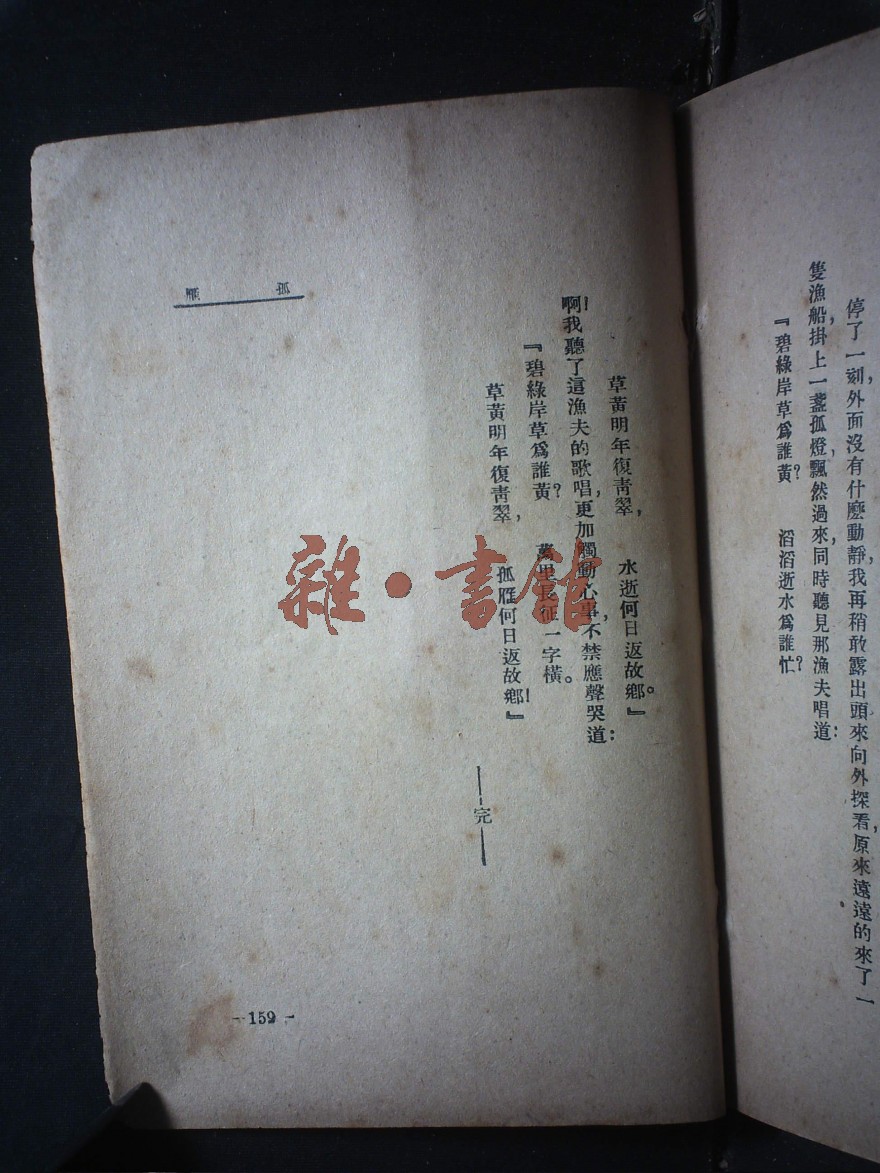 停了一刻，外面沒有什麽動靜，我再稍敢露出頭來向外探看，原來遠遠的來了一
隻漁船，掛上一盞孤燈，飄然過來，同時聽見那漁夫唱道：
『碧綠岸草爲誰黃？ 滔滔逝水爲誰忙？
草黃明年復青翠， 水逝何日返故鄉。』
啊！我聽了這漁夫的歌唱，更加觸動心事，不禁應聲哭道：
『碧綠岸草爲誰黃？ 萬里長征一字橫。
草黃明年復青翠， 孤雁何日返故鄉！』
——完——
孤 雁
- 159 -
雜·書館